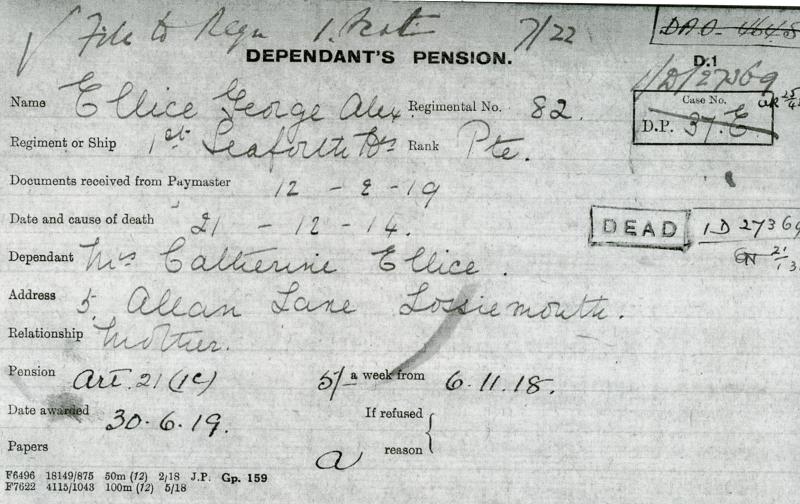 File to Regn 7/22
DEPENDANT'S PENSION.
D.1
1/D/27369
Name Ellice George Alex. Regimental No. 82.
Case No.
D.P. 37.E
Regiment or Ship 1st Seaforth Hrs Rank Pte.
Documents received from Paymaster 12 - 2 - 19
Date and cause of death 21 - 12 - 14.
DEAD 1 D 27369
Dependant Mrs Catherine Ellice.
Address 5, Allan Lane Lossiemouth.
Relationship Mother.
Pension Art. 21 (1c) 5/- a week from 6.11.18.
Date awarded 30.6.19. If refused
reason
Papers a
F6496 18149/875 50m (12) 2/18 J.P. Gp. 159
F7622 4115/1043 100m (12) 5/18